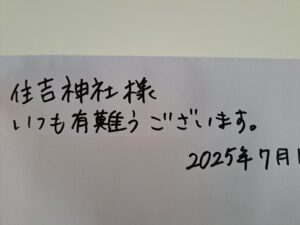 住吉神社様
いつも有難うございます。
2025年7月1